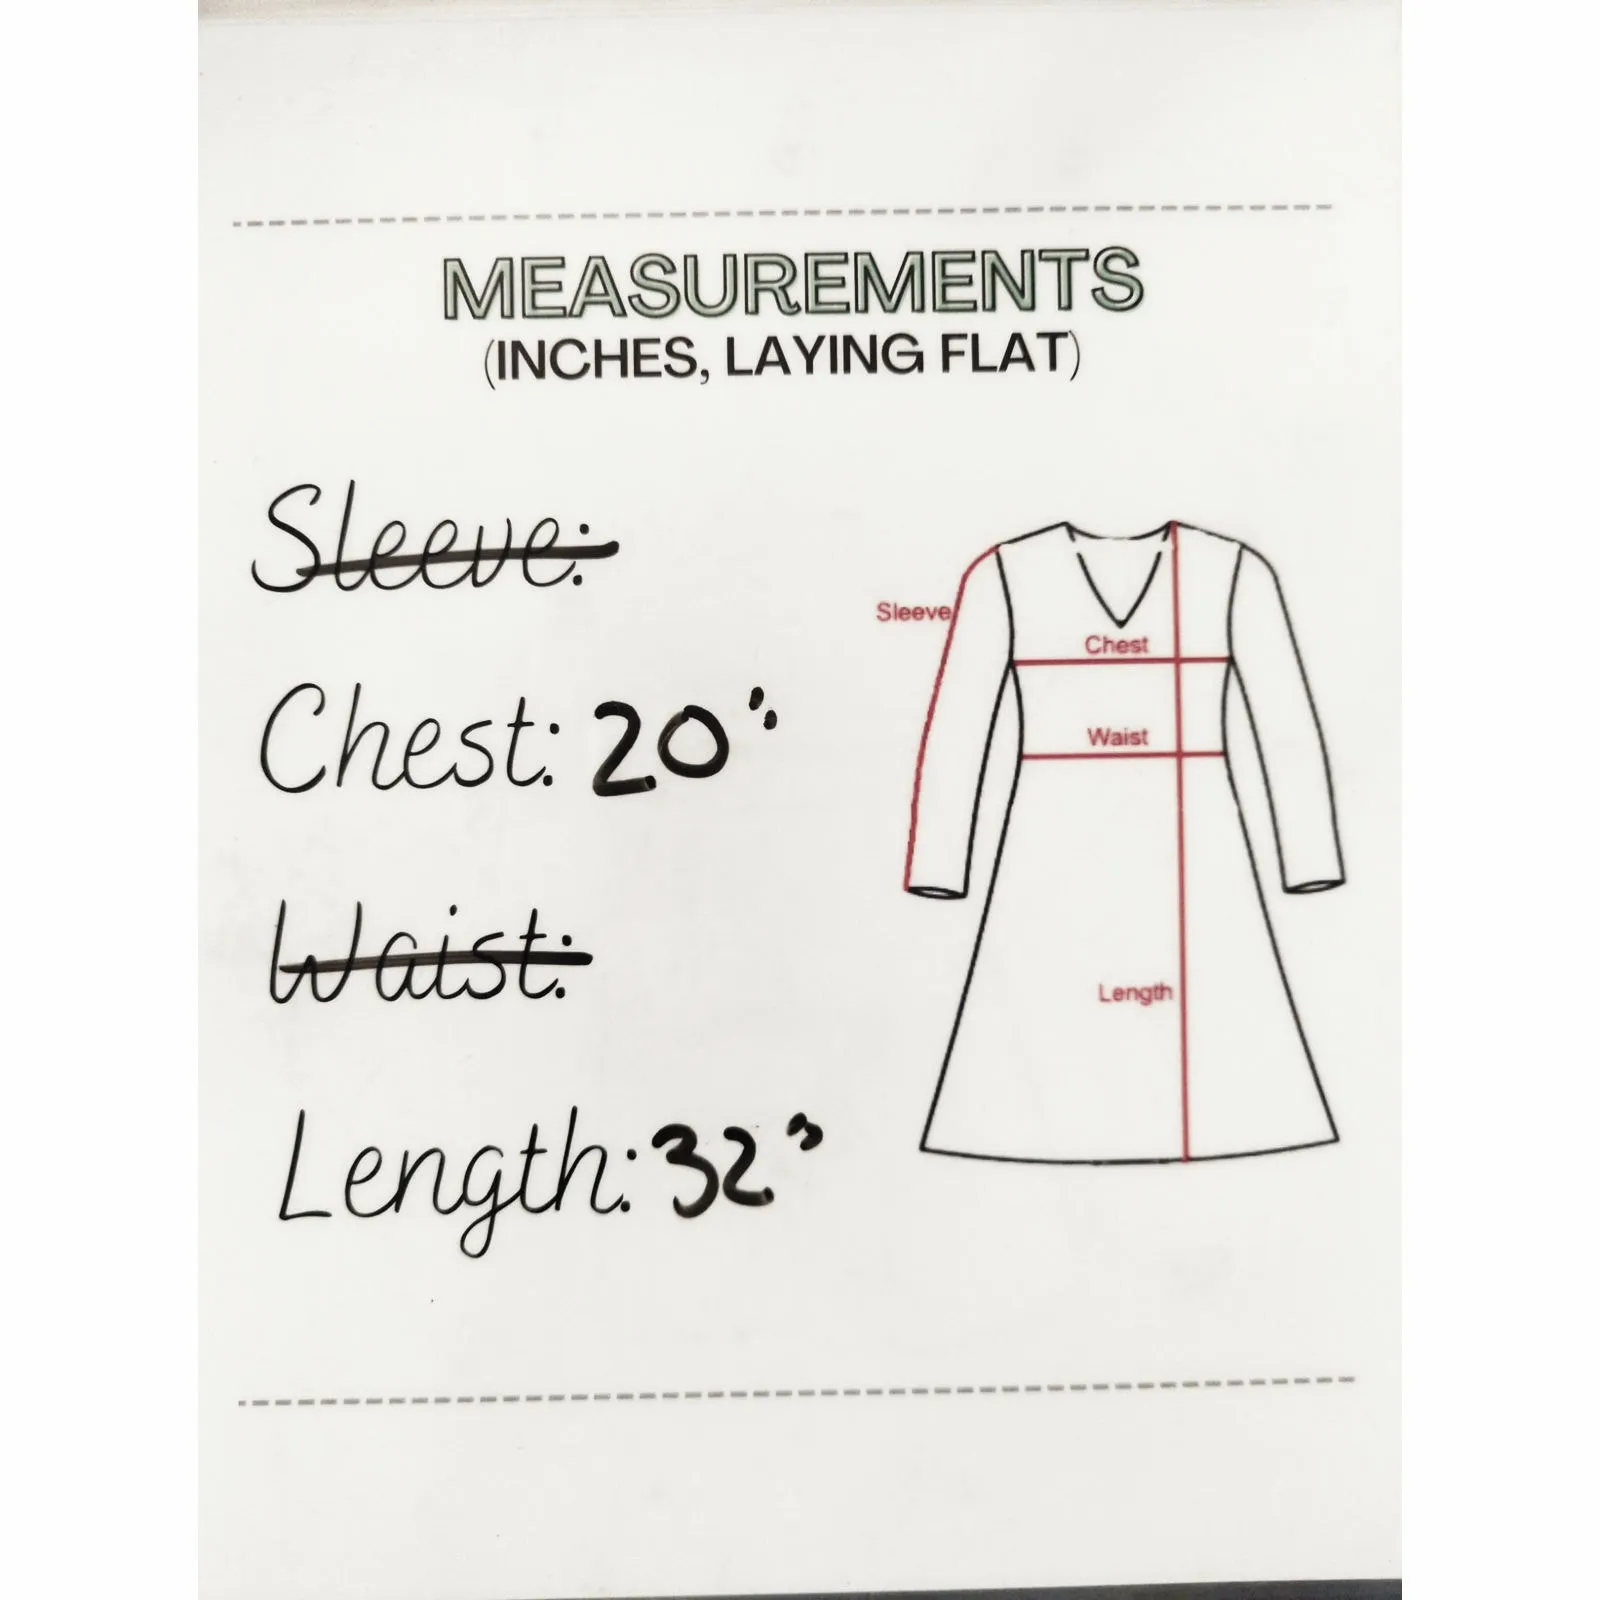 MEASUREMENTS
(INCHES, LAYING FLAT)
Sleeve:
Chest: 20"
Waist:
Length: 32"
Sleeve
Chest
Waist
Length